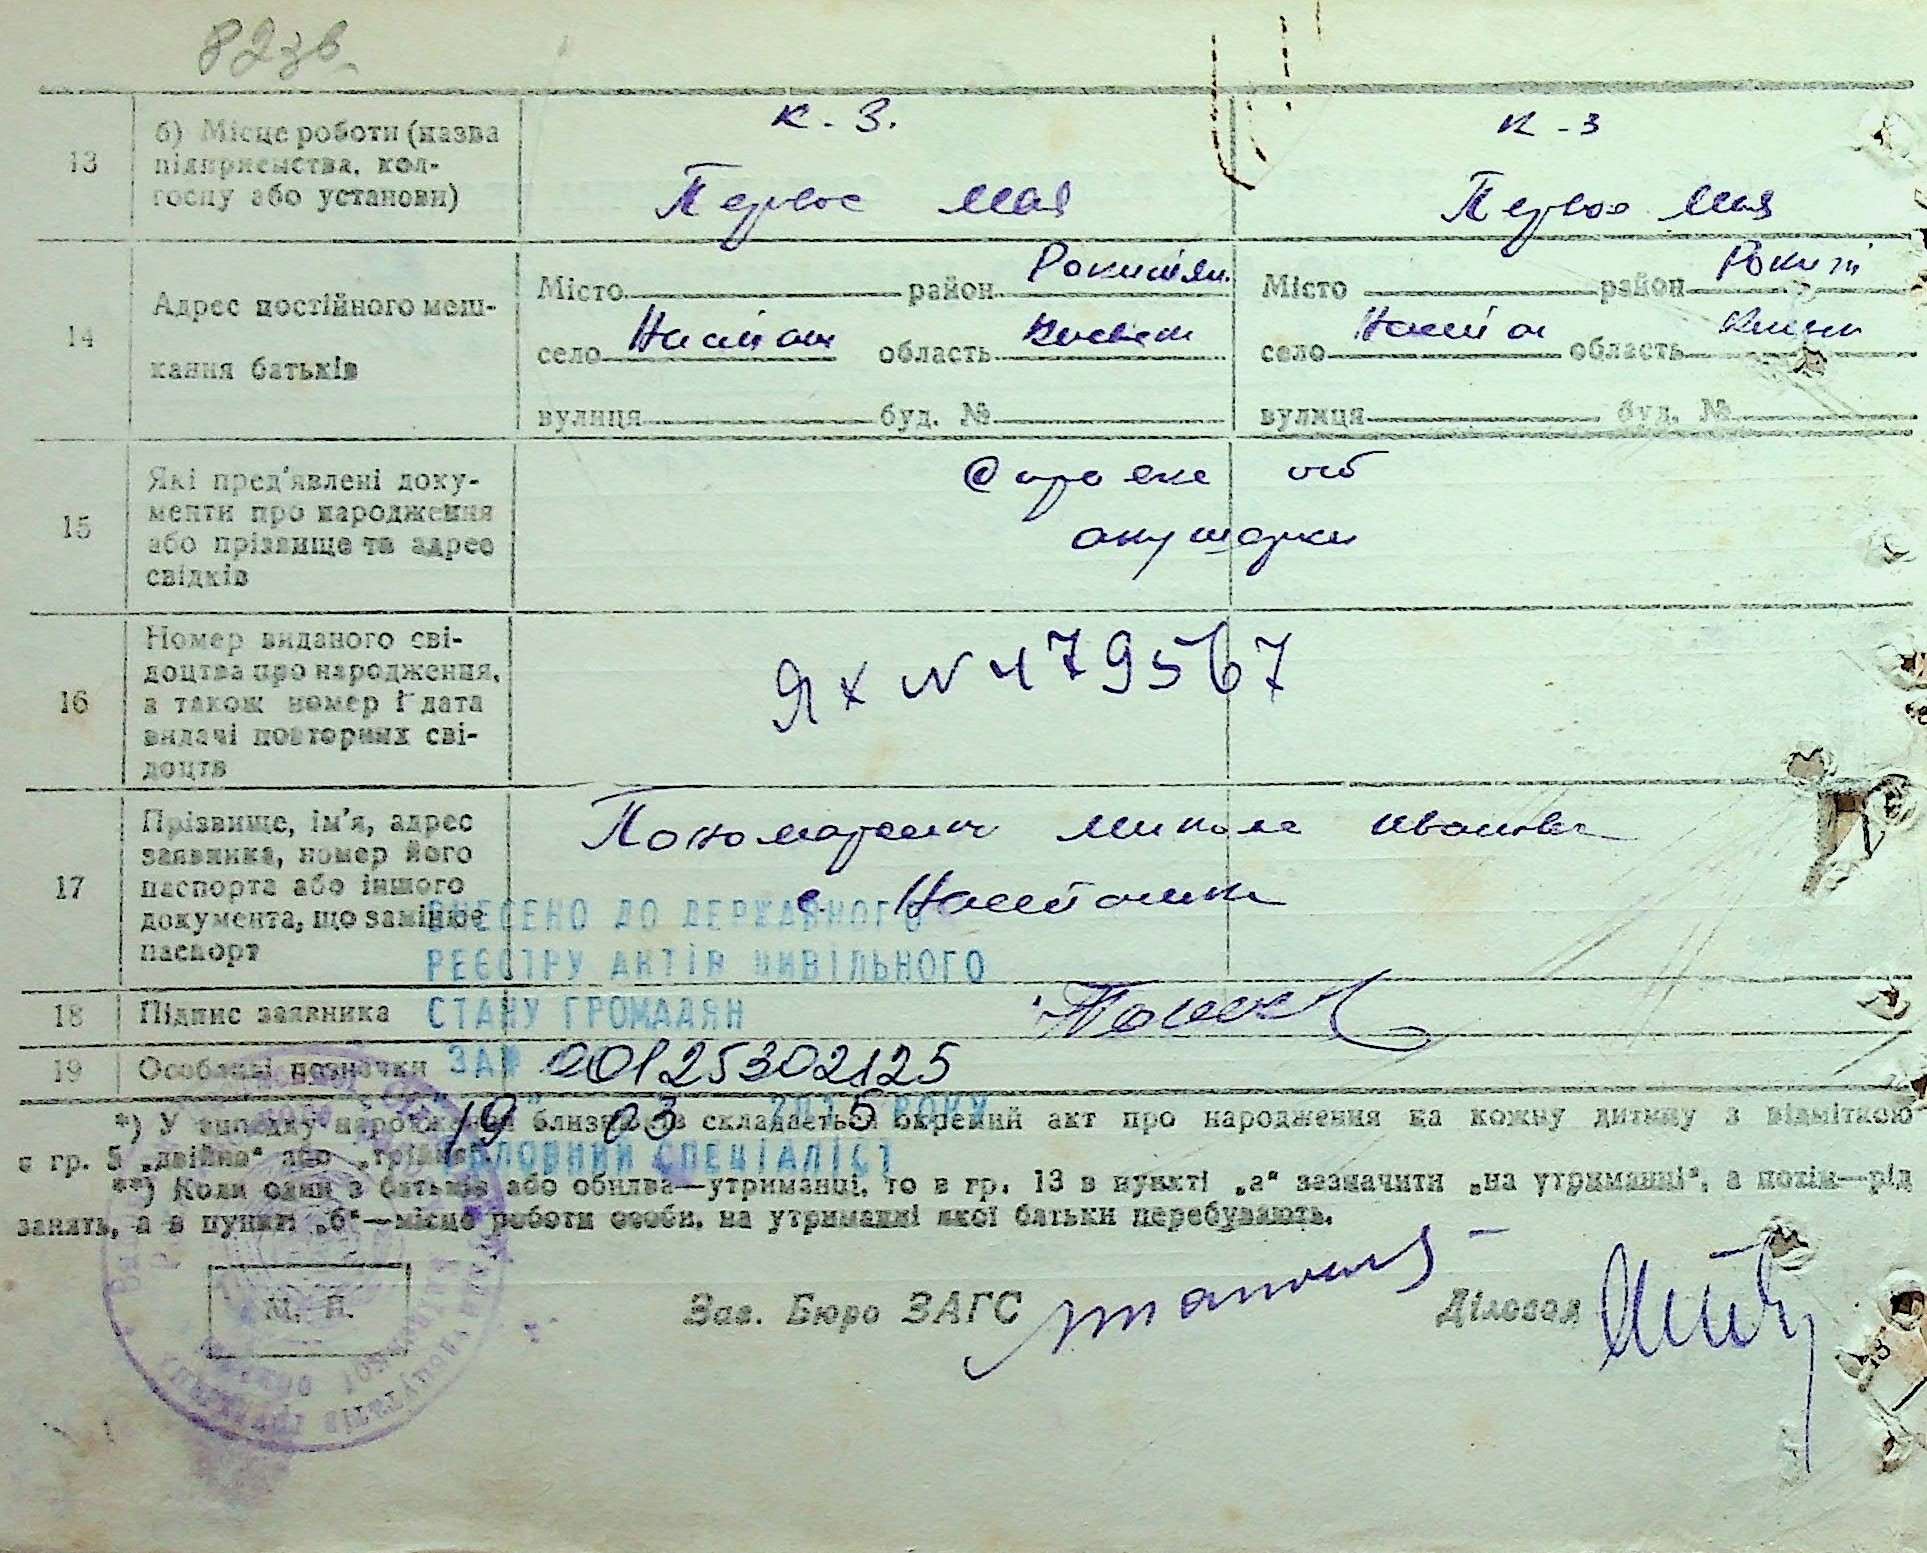 82зв.
13
б) Місце роботи (назва
підприємства, кол-
госпу або установи)
к. з.
Первое мая
к-з
Первое мая
14
Адрес постійного меш-
кання батьків
Місто район Рокитян.
село область
вулиця буд. №
Місто район Рокит
село область
вулиця буд. №
15
Які пред'явлені доку-
менти про народження
або прізвище та адрес
свідків
Справка об
акушерки
16
Номер виданого сві-
доцтва про народження,
а також номер і дата
видачі повторних сві-
доцтв
ЯХ № 479567
17
Прізвище, ім'я, адрес
заявника, номер його
паспорта або іншого
документа, що замінює
паспорт
Пономаренко Микола Иванович
с. Насташка
ВНЕСЕНО ДО ДЕРЖАВНОГО
РЕЄСТРУ АКТІВ ЦИВІЛЬНОГО
СТАНУ ГРОМАДЯН
18
Підпис заявника
19
Особливі позначки
ЗА № 00125302125
"19" 03 2015 РОКУ
ГОЛОВНИЙ СПЕЦІАЛІСТ
*) У випадку народження близнюків складається окремий акт про народження на кожну дитину з відміткою
в гр. 5 „двійня“ або „трійня“.
**) Коли один з батьків або обидва—утриманці, то в гр. 13 в пункті „а“ зазначити „на утриманні“, а потім—рід
занять, а в пункті „б“—місце роботи особи, на утриманні якої батьки перебувають.
М. П.
Зав. Бюро ЗАГС
Діловод